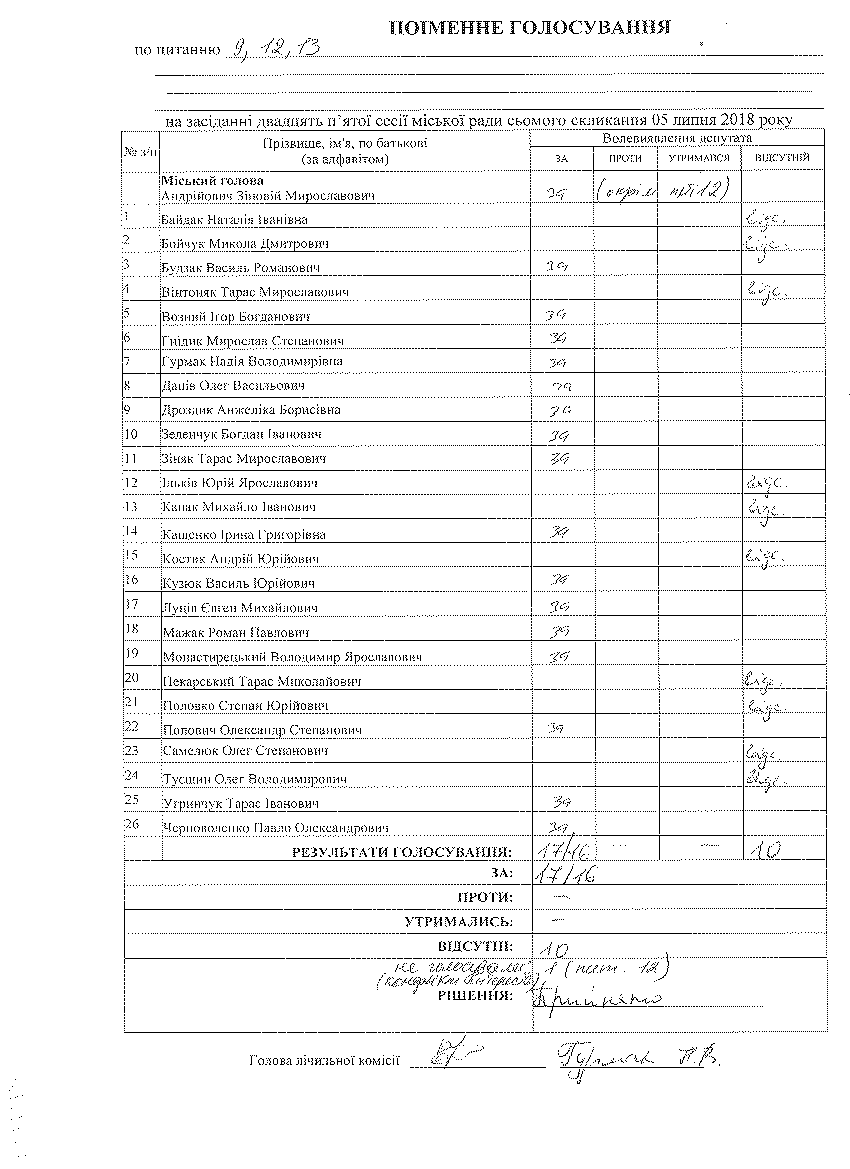 ПОІМЕННЕ ГОЛОСУВАННЯ
по питанню 9, 12, 13
на засіданні двадцять п'ятої сесії міської ради сьомого скликання 05 липня 2018 року
№ з/п Прізвище, ім'я, по батькові (за алфавітом) Волевиявлення депутата
ЗА ПРОТИ УТРИМАВСЯ ВІДСУТНІЙ
Міський голова
Андрійович Зіновій Мирославович за (окрім пит. 12)
1 Байдак Наталія Іванівна відс.
2 Бойчук Микола Дмитрович відс.
3 Будзак Василь Романович за
4 Вінтоняк Тарас Мирославович відс.
5 Возний Ігор Богданович за
6 Гнідик Мирослав Степанович за
7 Гурмак Надія Володимирівна за
8 Даців Олег Васильович за
9 Дроздик Анжеліка Борисівна за
10 Зеленчук Богдан Іванович за
11 Зіняк Тарас Мирославович за
12 Ільків Юрій Ярославович відс.
13 Капак Михайло Іванович відс.
14 Кащенко Ірина Григорівна за
15 Костик Андрій Юрійович відс.
16 Кузюк Василь Юрійович за
17 Луців Євген Михайлович за
18 Мажак Роман Павлович за
19 Монастирецький Володимир Ярославович за
20 Пекарський Тарас Миколайович відс.
21 Половко Степан Юрійович відс.
22 Попович Олександр Степанович за
23 Самелюк Олег Степанович відс.
24 Тусщин Олег Володимирович відс.
25 Угринчук Тарас Іванович за
26 Черноволенко Павло Олександрович за
РЕЗУЛЬТАТИ ГОЛОСУВАННЯ: 17/16 — — 10
ЗА: 17/16
ПРОТИ: —
УТРИМАЛИСЬ: —
ВІДСУТНІ: 10
не голосували: 1 (пит. 12)
(конфлікт інтересів)
РІШЕННЯ: Прийнято
Голова лічильної комісії Гурмак Н.В.